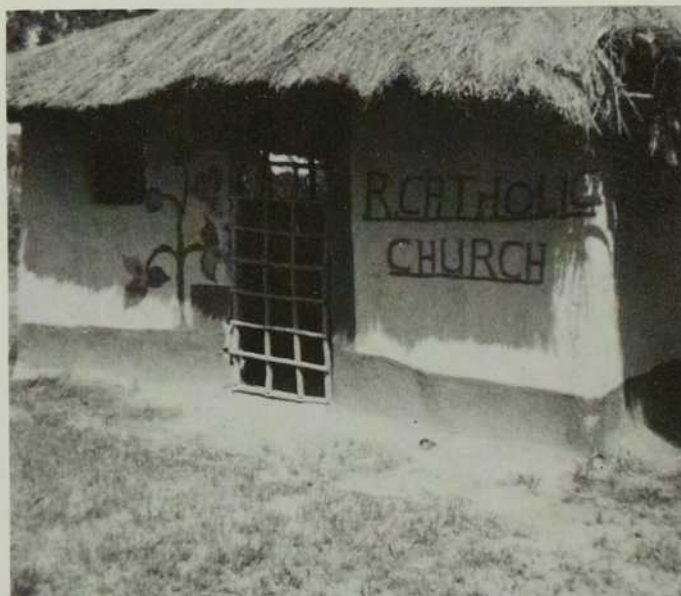 R.CATHOLIC
CHURCH